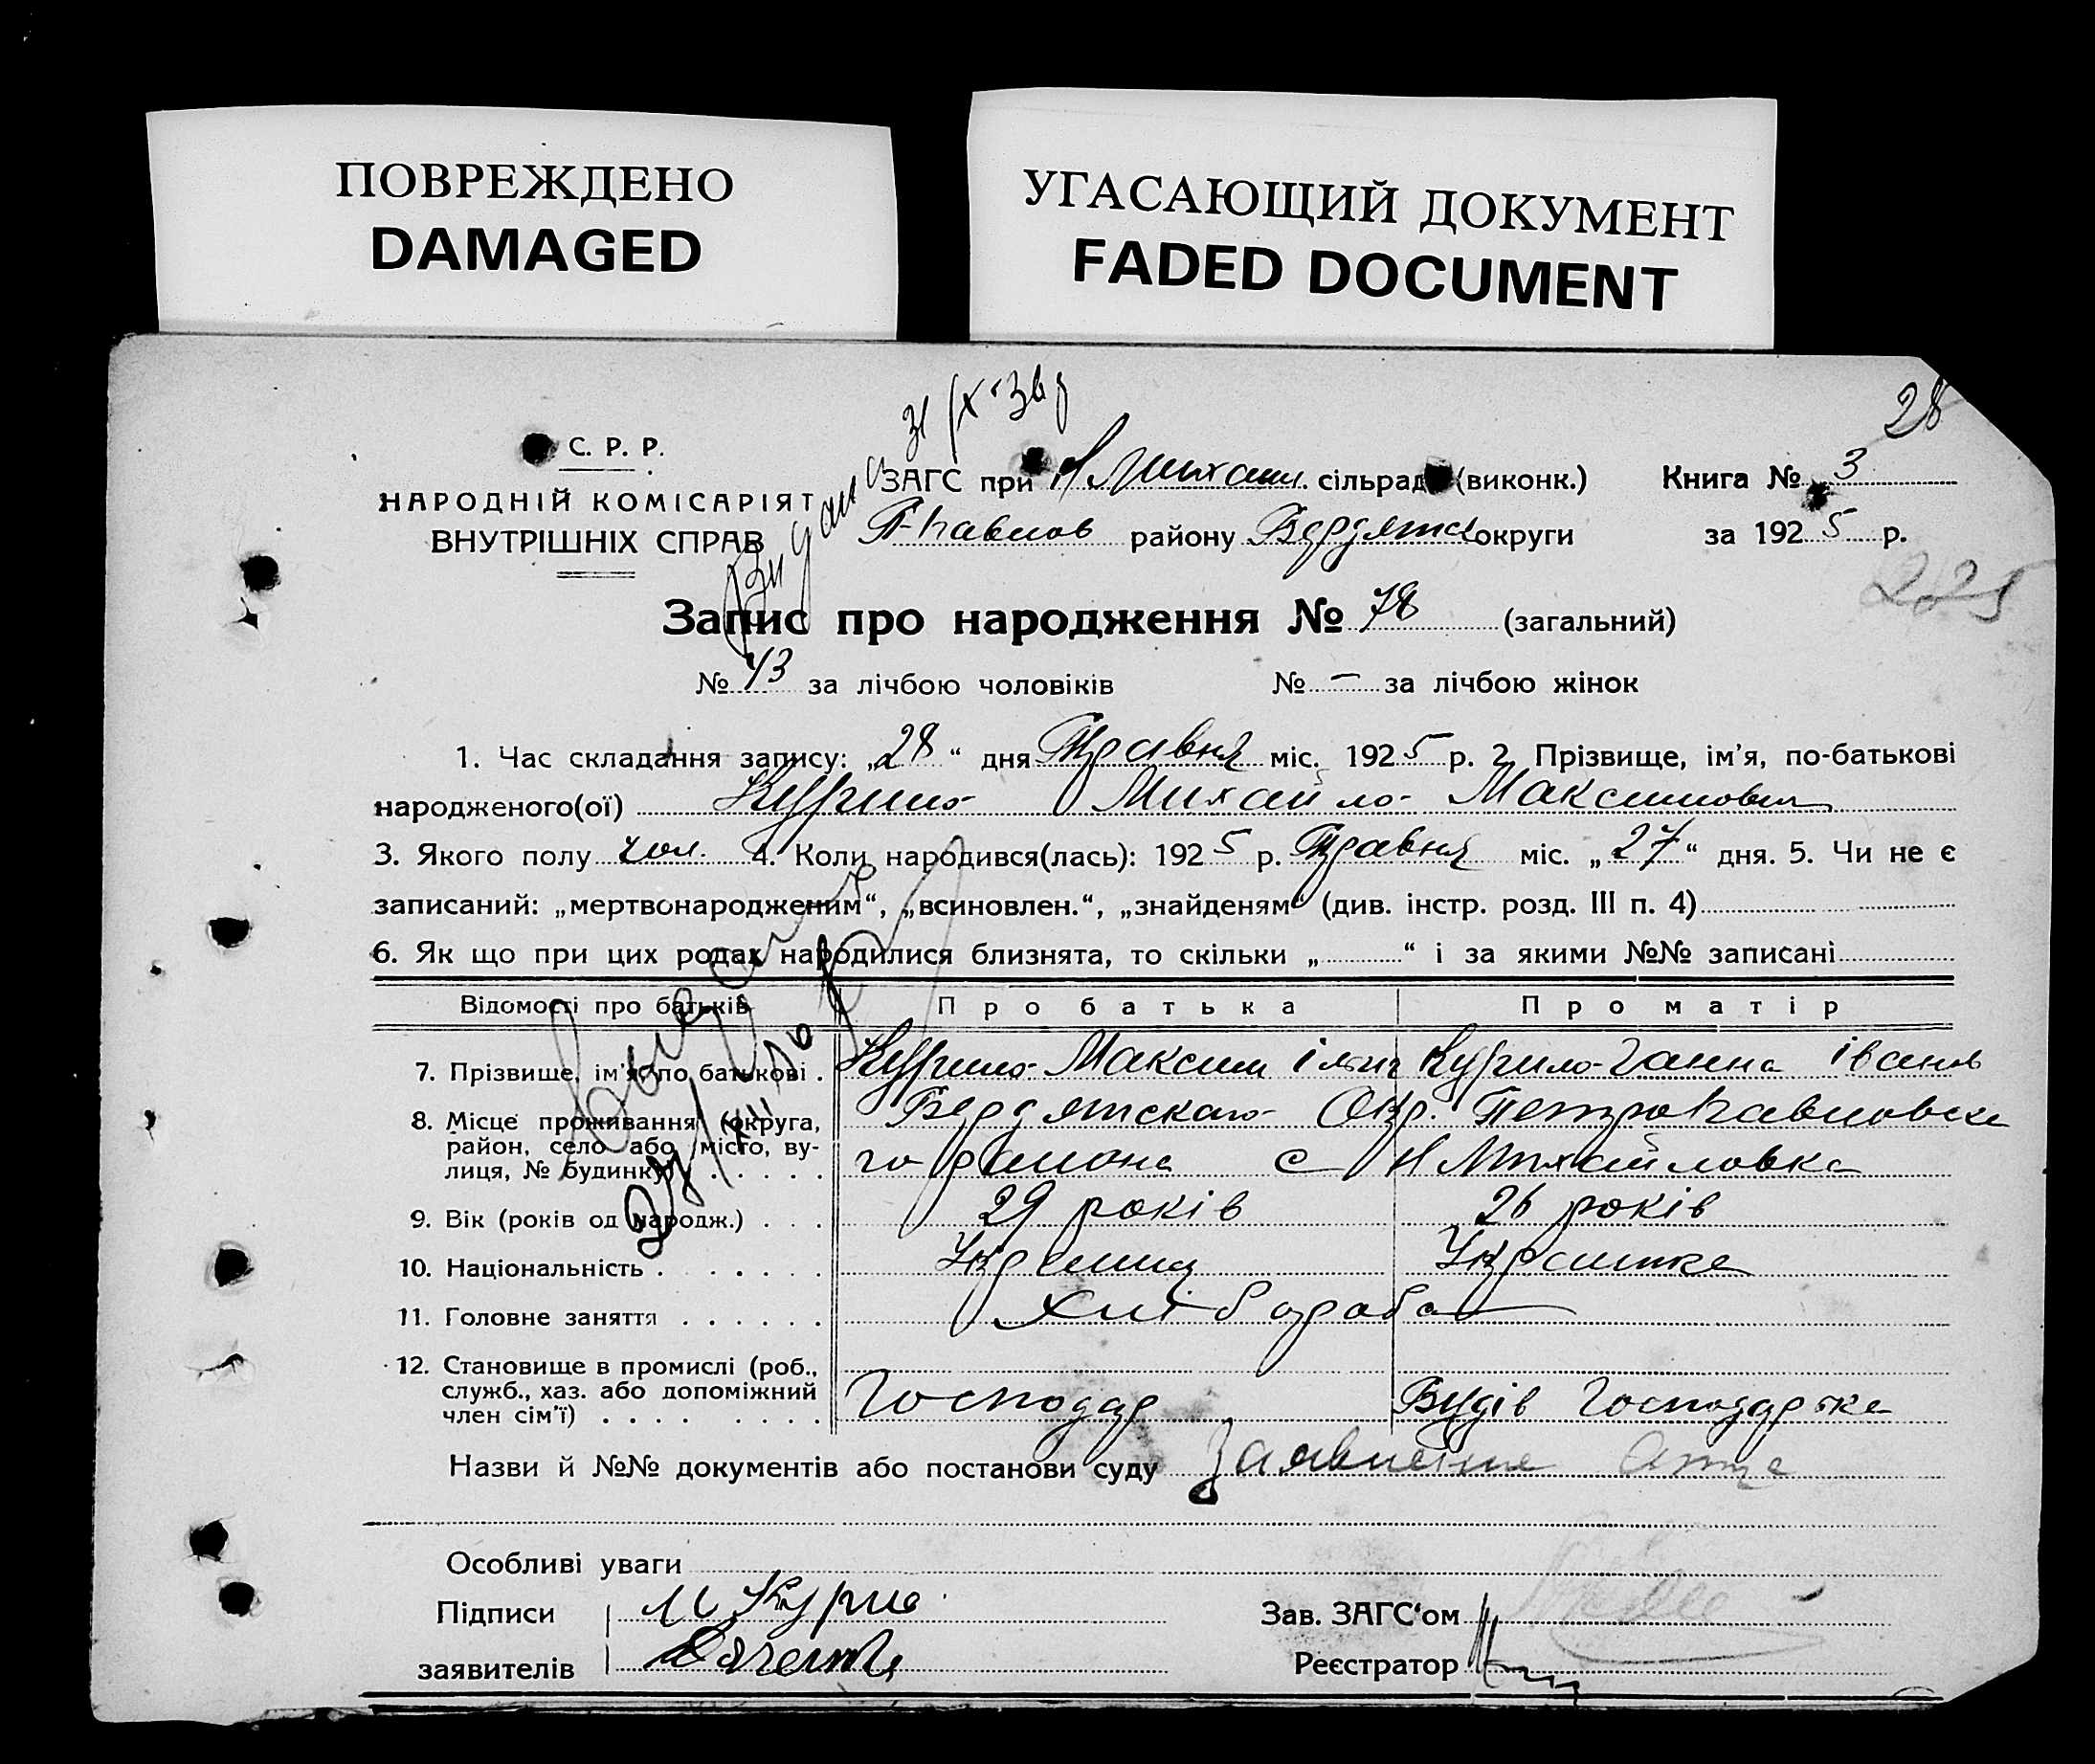 ПОВРЕЖДЕНО
DAMAGED
УГАСАЮЩИЙ ДОКУМЕНТ
FADED DOCUMENT
28
С. Р. Р.
НАРОДНІЙ КОМІСАРІЯТ
ВНУТРІШНІХ СПРАВ
ЗАГС при Н Михайл. сільрад (виконк.)
П-павлов району Бердянск округи
Книга № 3
за 1925 р.
225
Запис про народження № 78 (загальний)
№ 43 за лічбою чоловіків № — за лічбою жінок
1. Час складання запису: „28“ дня Травня міс. 1925 р. 2. Прізвище, ім'я, по-батькові
народженого(ої) Курило Михайло Максимович
3. Якого полу чол. 4. Коли народився(лась): 1925 р. Травня міс. „27“ дня. 5. Чи не є
записаний: „мертвонародженим“, „всиновлен.“, „знайденям“ (див. інстр. розд. III п. 4)
6. Як що при цих родах народилися близнята, то скільки „ “ і за якими №№ записані
Відомості про батьків Про батька Про матір
7. Прізвище, ім'я, по батькові . Курило Максим Ілліч Курило Ганна Іванов
8. Місце проживання (округа, район, село або місто, вулиця, № будинку) Бердянскаго Окр. Петропавловска
го района с Н Михайловка
9. Вік (років од народж.) . . . 29 років 26 років
10. Національність . . . . . . Українц Українка
11. Головне заняття . . . . . . Хлібороб
12. Становище в промислі (роб.,
служб., хаз. або допоміжний
член сім'ї) . . . . . . . . Господар Вудів Господарка
Назви й №№ документів або постанови суду Заявление Отца
Особливі уваги
Підписи М Курило Зав. ЗАГС'ом
заявителів Реєстратор